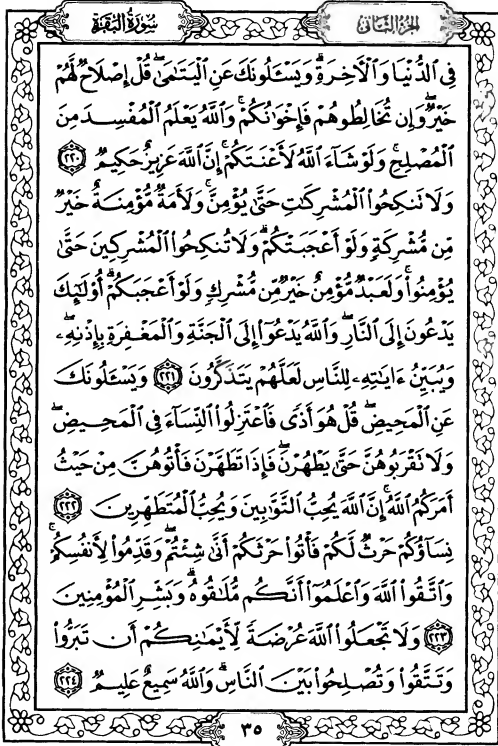 سُورَةُ البَقَرَةِ
الجُزْءُ الثَّانِي
فِي الدُّنْيَا وَالْآخِرَةِ ۗ وَيَسْـَٔلُونَكَ عَنِ الْيَتَامَىٰ ۖ قُلْ إِصْلَاحٌ لَّهُمْ
خَيْرٌ ۖ وَإِن تُخَالِطُوهُمْ فَإِخْوَانُكُمْ ۚ وَاللَّهُ يَعْلَمُ الْمُفْسِدَ مِنَ
الْمُصْلِحِ ۚ وَلَوْ شَاءَ اللَّهُ لَأَعْنَتَكُمْ ۚ إِنَّ اللَّهَ عَزِيزٌ حَكِيمٌ ٢٢٠
وَلَا تَنكِحُوا الْمُشْرِكَاتِ حَتَّىٰ يُؤْمِنَّ ۚ وَلَأَمَةٌ مُّؤْمِنَةٌ خَيْرٌ
مِّن مُّشْرِكَةٍ وَلَوْ أَعْجَبَتْكُمْ ۗ وَلَا تُنكِحُوا الْمُشْرِكِينَ حَتَّىٰ
يُؤْمِنُوا ۚ وَلَعَبْدٌ مُّؤْمِنٌ خَيْرٌ مِّن مُّشْرِكٍ وَلَوْ أَعْجَبَكُمْ ۗ أُولَٰئِكَ
يَدْعُونَ إِلَى النَّارِ ۖ وَاللَّهُ يَدْعُوا إِلَى الْجَنَّةِ وَالْمَغْفِرَةِ بِإِذْنِهِ ۖ
وَيُبَيِّنُ ءَايَاتِهِ لِلنَّاسِ لَعَلَّهُمْ يَتَذَكَّرُونَ ٢٢١ وَيَسْـَٔلُونَكَ
عَنِ الْمَحِيضِ ۖ قُلْ هُوَ أَذًى فَاعْتَزِلُوا النِّسَاءَ فِي الْمَحِيضِ ۖ
وَلَا تَقْرَبُوهُنَّ حَتَّىٰ يَطْهُرْنَ ۖ فَإِذَا تَطَهَّرْنَ فَأْتُوهُنَّ مِنْ حَيْثُ
أَمَرَكُمُ اللَّهُ ۚ إِنَّ اللَّهَ يُحِبُّ التَّوَّابِينَ وَيُحِبُّ الْمُتَطَهِّرِينَ ٢٢٢
نِسَاؤُكُمْ حَرْثٌ لَّكُمْ فَأْتُوا حَرْثَكُمْ أَنَّىٰ شِئْتُمْ ۖ وَقَدِّمُوا لِأَنفُسِكُمْ ۚ
وَاتَّقُوا اللَّهَ وَاعْلَمُوا أَنَّكُم مُّلَاقُوهُ ۗ وَبَشِّرِ الْمُؤْمِنِينَ
٢٢٣ وَلَا تَجْعَلُوا اللَّهَ عُرْضَةً لِّأَيْمَانِكُمْ أَن تَبَرُّوا
وَتَتَّقُوا وَتُصْلِحُوا بَيْنَ النَّاسِ ۗ وَاللَّهُ سَمِيعٌ عَلِيمٌ ٢٢٤
٣٥